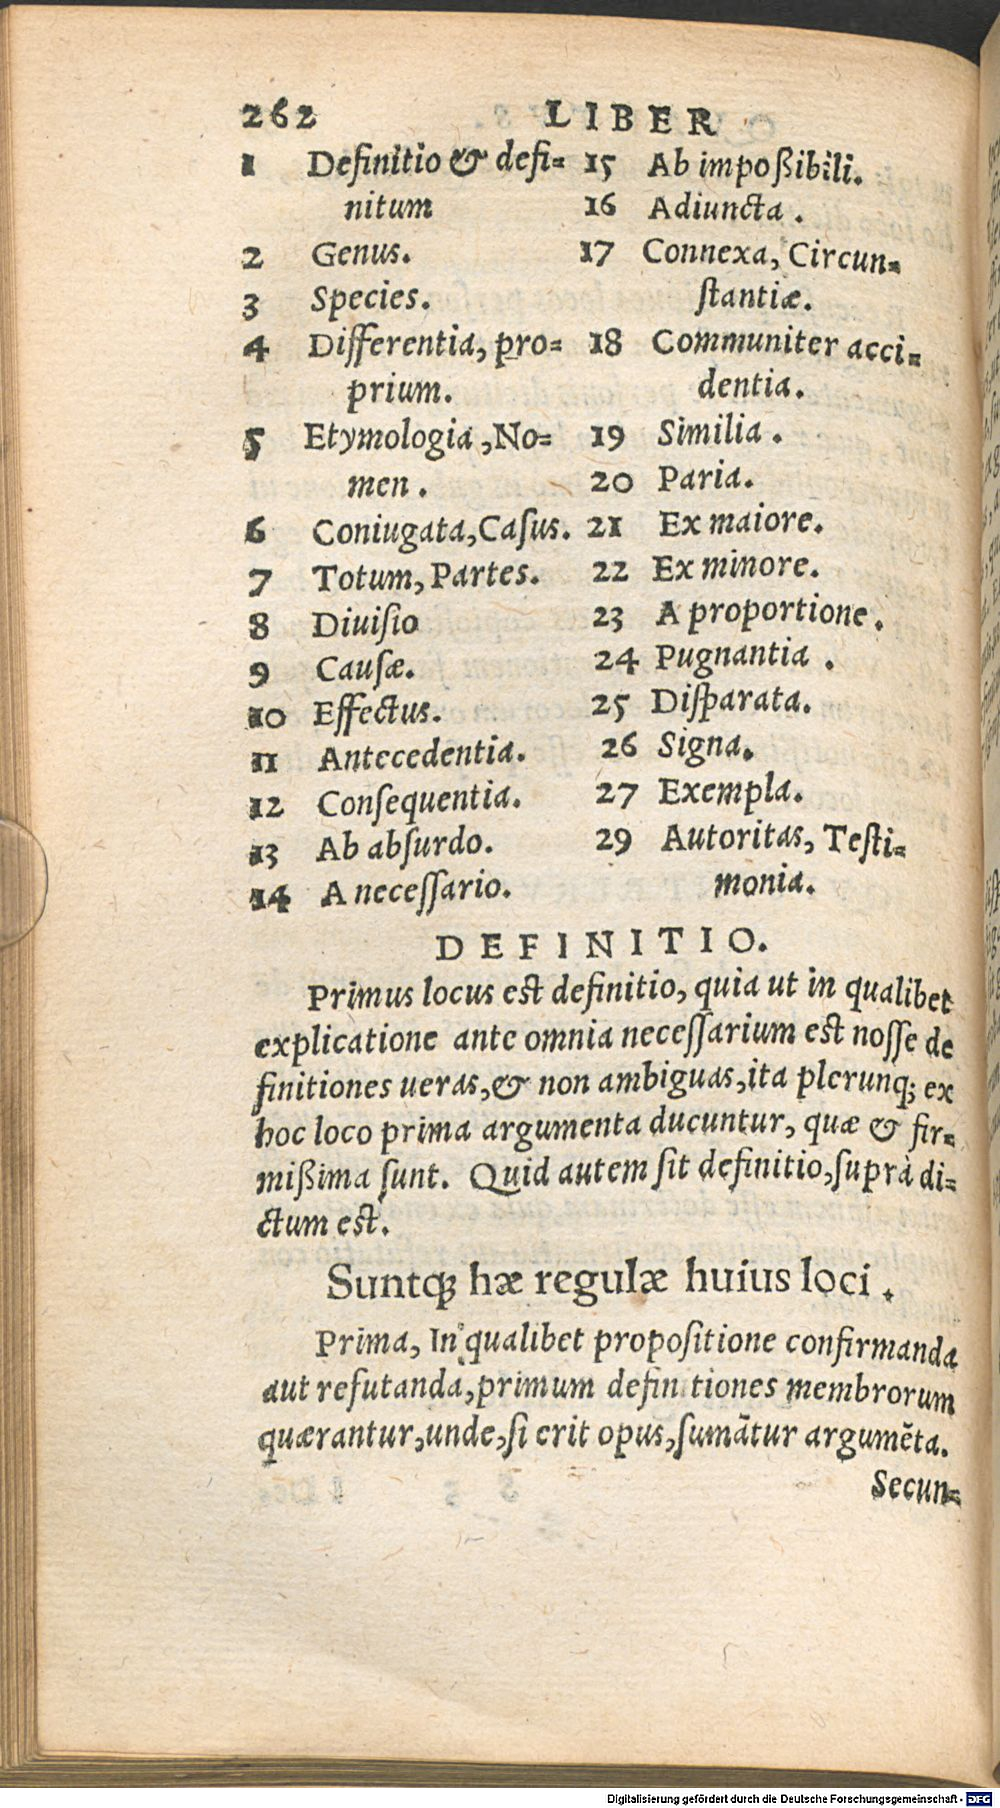 262 LIBER
1 Definitio & defi-
nitum
2 Genus.
3 Species.
4 Differentia, pro-
prium.
5 Etymologia, No-
men.
6 Coniugata, Casus.
7 Totum, Partes.
8 Diuisio
9 Causæ.
10 Effectus.
11 Antecedentia.
12 Consequentia.
13 Ab absurdo.
14 A necessario.
15 Ab impoßibili.
16 Adiuncta.
17 Connexa, Circun-
stantiæ.
18 Communiter acci-
dentia.
19 Similia.
20 Paria.
21 Ex maiore.
22 Ex minore.
23 A proportione.
24 Pugnantia.
25 Disparata.
26 Signa.
27 Exempla.
29 Autoritas, Testi-
monia.
DEFINITIO.
Primus locus est definitio, quia ut in qualibet
explicatione ante omnia necessarium est nosse de
finitiones ueras, & non ambiguas, ita plerunq; ex
hoc loco prima argumenta ducuntur, quæ & fir-
mißima sunt. Quid autem sit definitio, suprà di-
ctum est.
Suntq; hæ regulæ huius loci.
Prima, In qualibet propositione confirmanda
aut refutanda, primum definitiones membrorum
quærantur, unde, si erit opus, sumãtur argumẽta.
Secun-
Digitalisierung gefördert durch die Deutsche Forschungsgemeinschaft - DFG